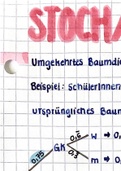 STOCHA
Umgekehrtes Baumdia
Beispiel: SchülerInnen
ursprüngliches Baum
0,6 w → 0,
0,75 GK
m → 0,